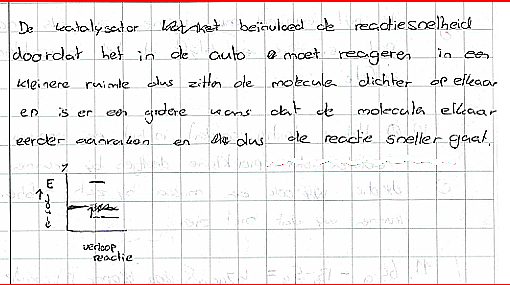 De katalysator beïnvloed de reactiesnelheid
doordat het in de auto moet reageren in een
kleinere ruimte dus zitten de molecule dichter op elkaar
en is er een grotere kans dat de molecula elkaar
eerder aanraken en dus de reactie sneller gaat.
E
verloop
reactie